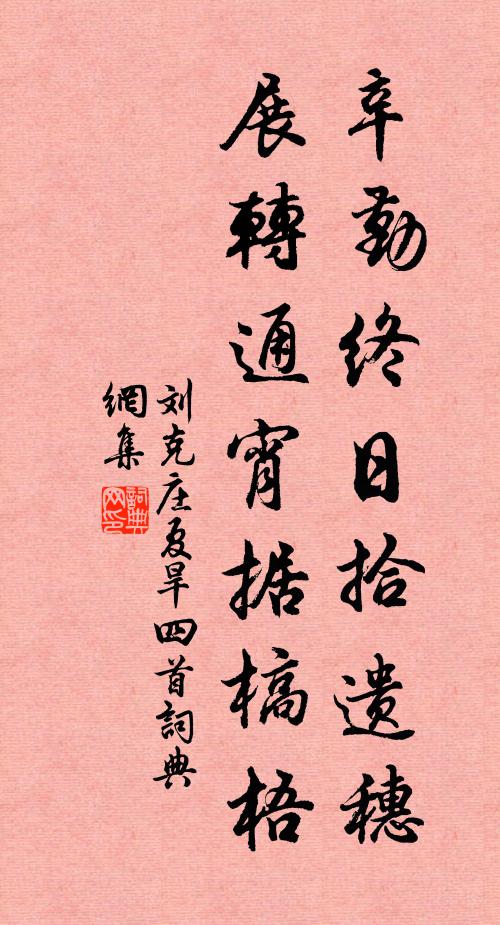 辛勤终日拾遗穗
展轉通宵据槁梧
刘克庄夏旱四首詞典
網集
詞典网印